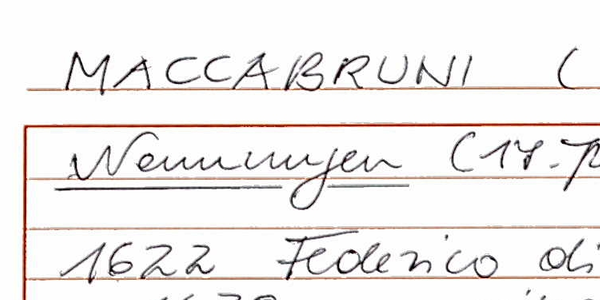 MACCABRUNI (
Nennungen (17.
1622 Federico di